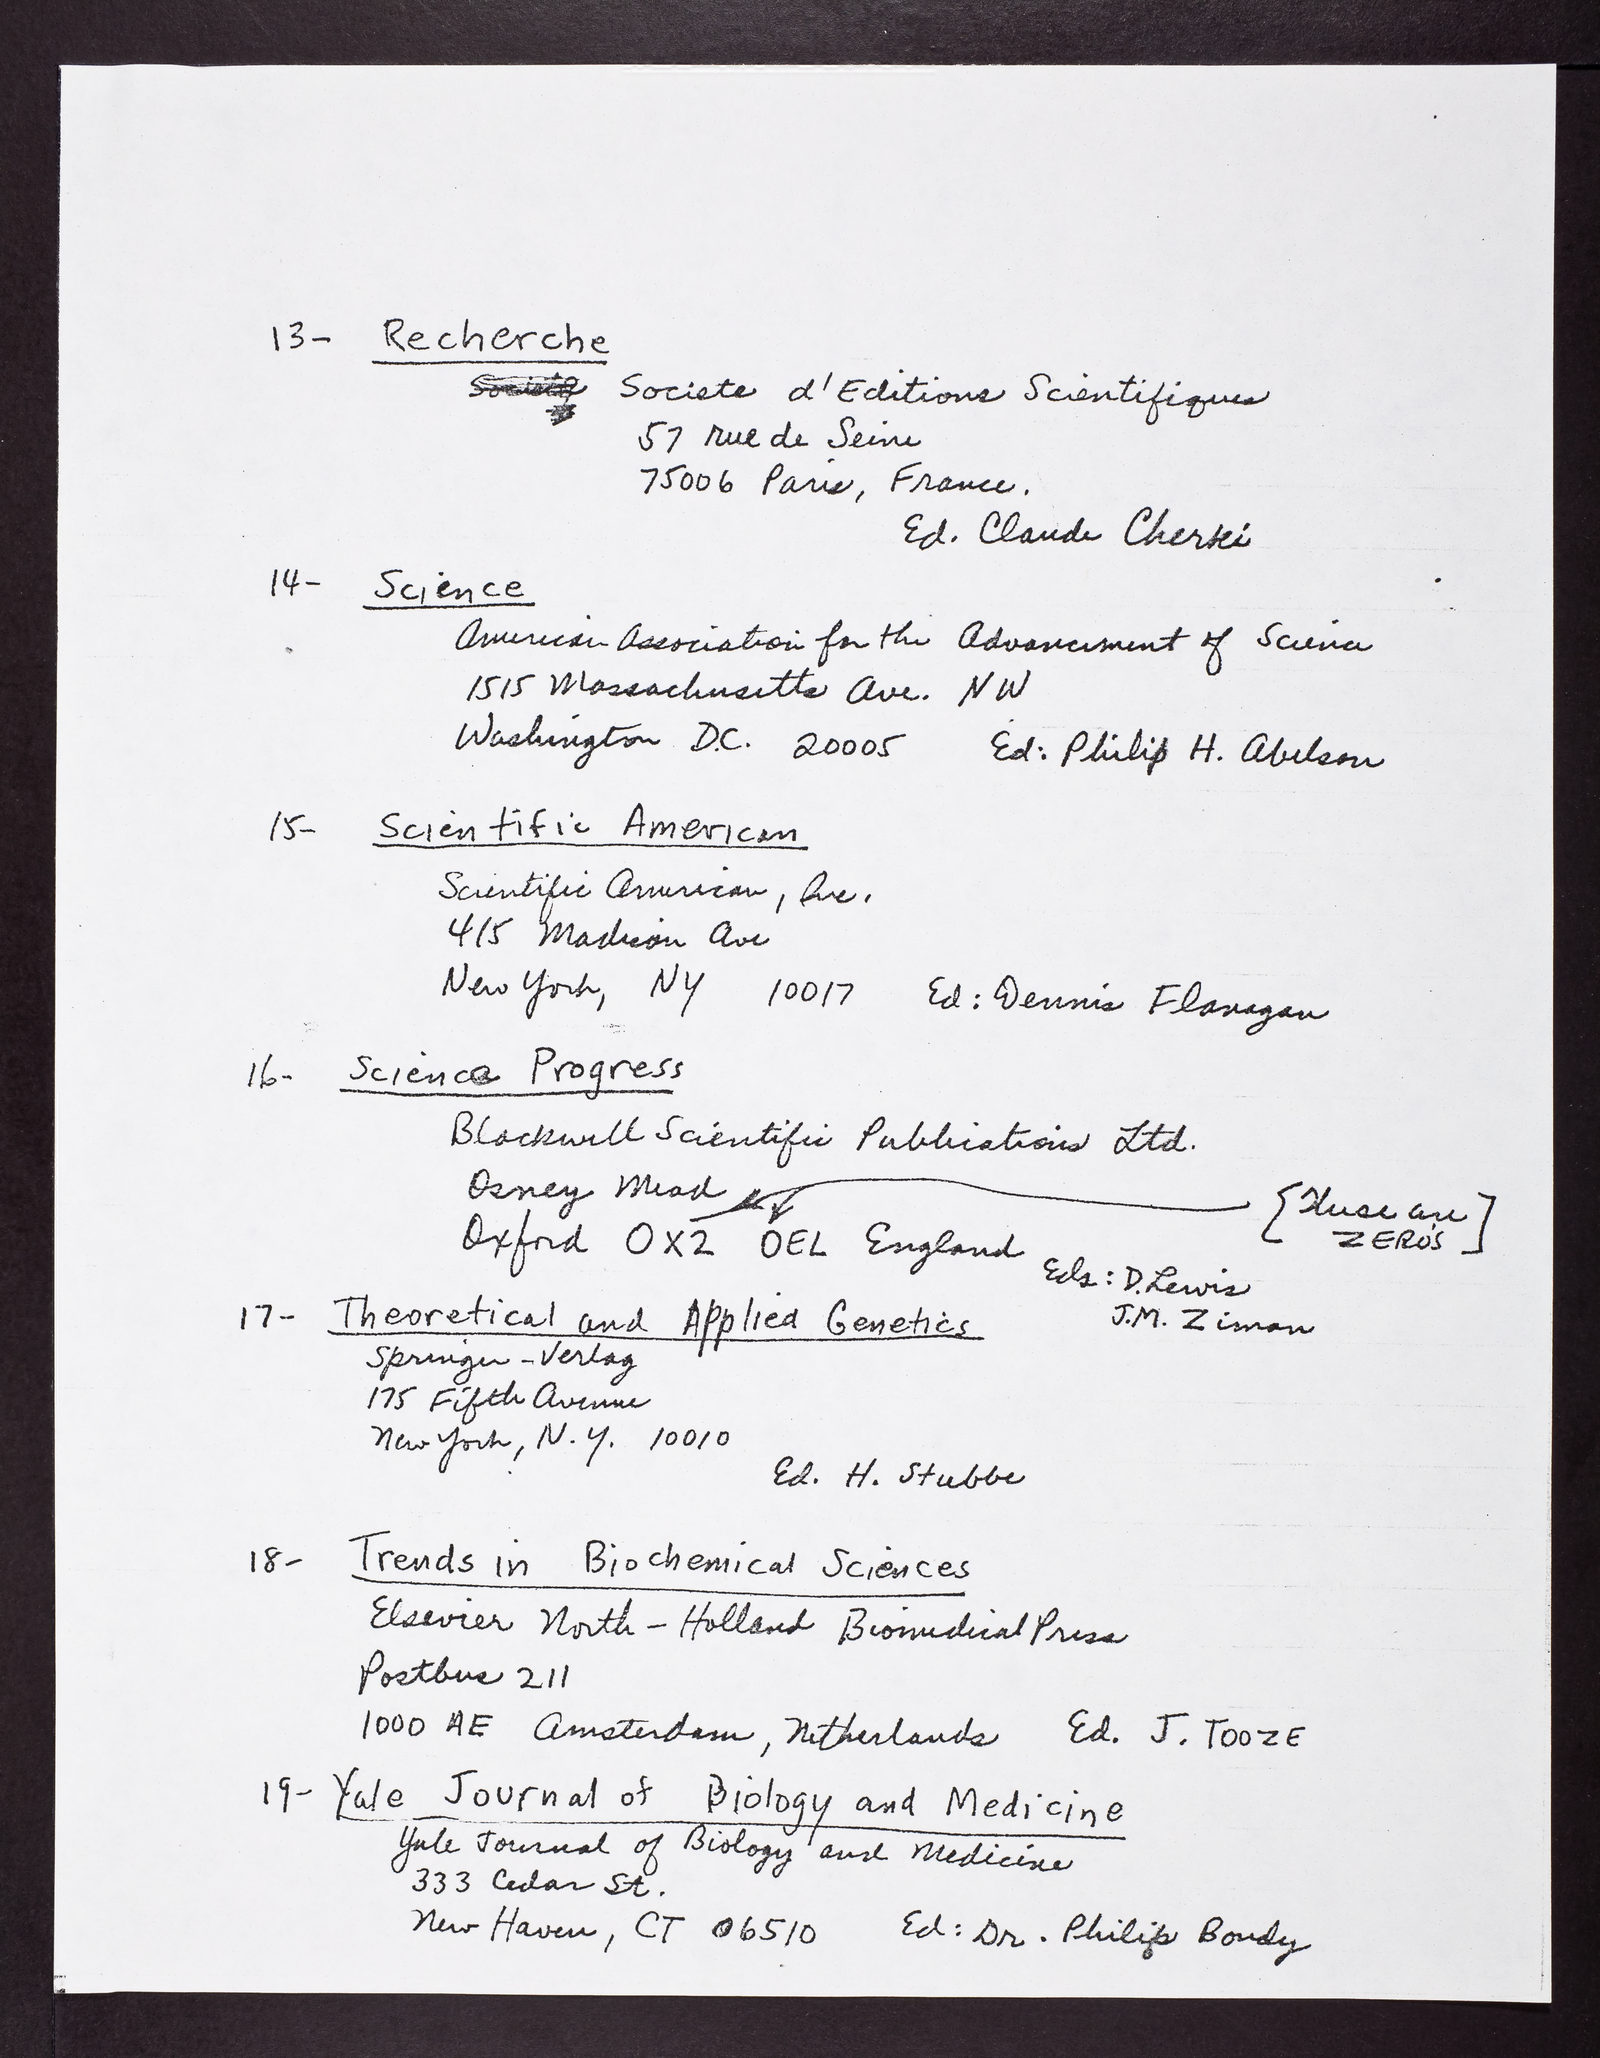 13- Recherche
Societe d'Editions Scientifiques
57 rue de Seine
75006 Paris, France.
Ed. Claude Cherki
14- Science
American Association for the Advancement of Science
1515 Massachusetts Ave. NW
Washington D.C. 20005 Ed: Philip H. Abelson
15- Scientific American
Scientific American, Inc.
415 Madison Ave
New York, NY 10017 Ed: Dennis Flanagan
16- Science Progress
Blackwell Scientific Publications Ltd.
Osney Mead
[These are
ZEROS]
Oxford OX2 0EL England
Eds: D. Lewis
J.M. Ziman
17- Theoretical and Applied Genetics
Springer-Verlag
175 Fifth Avenue
New York, N.Y. 10010
Ed. H. Stubbe
18- Trends in Biochemical Sciences
Elsevier North-Holland Biomedical Press
Postbus 211
1000 AE Amsterdam, Netherlands Ed. J. TOOZE
19- Yale Journal of Biology and Medicine
Yale Journal of Biology and Medicine
333 Cedar St.
New Haven, CT 06510 Ed: Dr. Philip Bondy